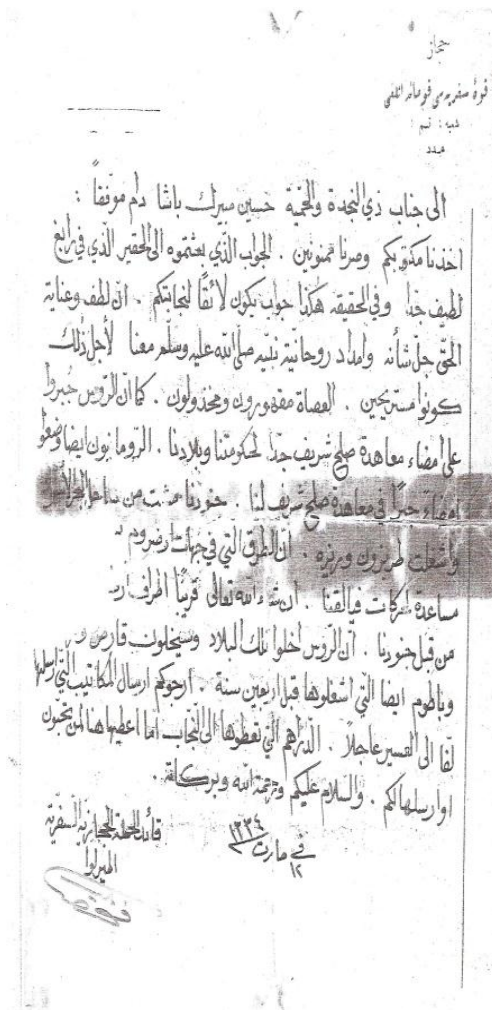 حجاز
قوة سفريه سى قوماندانلغى
شعبه : قسم :
عدد
الى جناب ذي النجدة والحمية حسين مبيرك باشا دام موفقاً :
اخذنا مكتوبكم وصرنا ممنونين . الجواب الذي بعثتموه الى الحقير الذي في رابغ
لطيف جدا وفي الحقيقه هكذا جواب يكون لائقاً لنجابتكم . ان لطف وعناية
الحق جل شأنه وامداد روحانية نبيه صلى الله عليه وسلم معنا لأجل ذلك
كونوا مستريحين . العصاة مقهورون ومخذولون . كما ان الروس جبروا
على امضاء معاهدة صلح شريف جدا لحكومتنا وبلادنا . الرومانيون ايضا وضعوا
امضاء جبراً في معاهدة صلح شريف لنا . جنودنا مشت من ساحل البحر الأسود
واشغلت طربزون وريزه . ان الطرق التي في جهات ارضروم
مساعدة لحركات فيالقنا . ان شاء الله تعالى قريباً اطراف
من قبل جنودنا . ان الروس اخلوا تلك البلاد وسيخلون قارص
وباطوم ايضا التي اشغلوها قبل اربعين سنة . ارجوكم ارسال المكاتيب التي ارسلها
لفا الى القسير عاجلاً . الدراهم التي تعطوها الى النجاب اما اعطيها هنا لمن تحبون
او ارسلها لكم . والسلام عليكم ورحمة الله وبركاته .
قائد الحملة الحجازية السفرية
في ١٢ مارت ١٣٣٤
الميرلوا